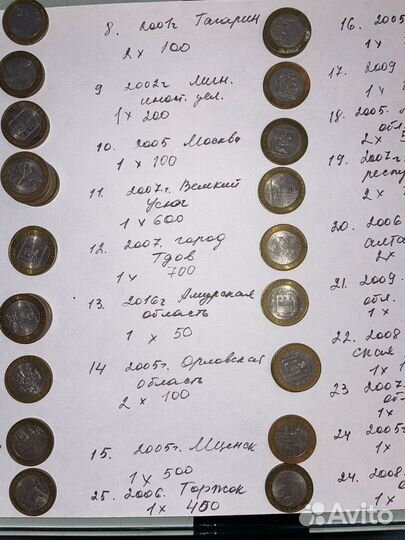 8. 2001г Гагарин
2 х 100
9 2002г Мин.
иност. дел.
1 х 200
10. 2005 Москва
1 х 100
11. 2007.г. Великий
Устюг
1 х 600
12. 2007. город
Гдов
1 х 700
13. 2016г Амурская
область
1 х 50
14 2005г. Орловская
область
2 х 100
15. 2005г. Мценск
1 х 500
25. 2006. Торжок
1 х 450
16. 2005
1 х
17. 2009
1 х
18. 2005.
обл.
2 х
19. 2007.г.
респу
2 х
20. 2006
алта
2 х
21. 2009.
обл.
1 х
22. 2008
ская
1 х 1
23 2007.
об
1 х
24 2005г
1 х
24. 2008.
1 х
Avito